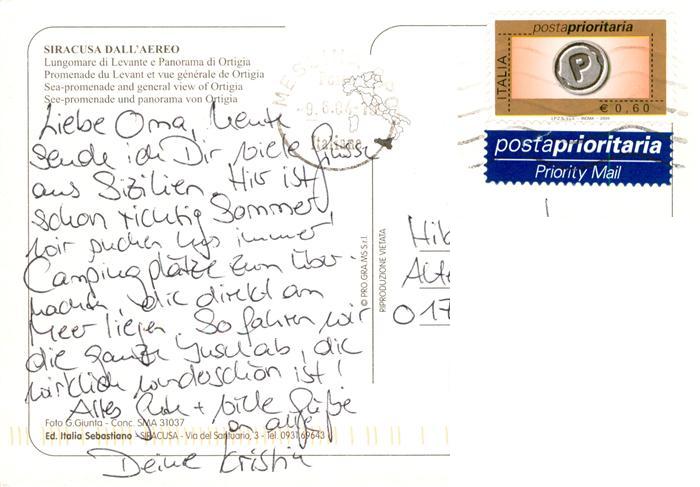 SIRACUSA DALL'AEREO
Lungomare di Levante e Panorama di Ortigia
Promenade du Levant et vue générale de Ortigia
Sea-promenade and general view of Ortigia
See-promenade und panorama von Ortigia
Liebe Oma, heute
sende ich Dir viele Grüsse
aus Sizilien. Hier ist
schon richtig Sommer,
wir suchen uns immer
Campingplätze zum Über-
nachten, die direkt am
Meer liegen. So fahren wir
die ganze Insel ab, die
wirklich wunderschön ist!
Alles Gute + viele Grüße
an alle
Deine Kristin
Foto G.Giunta - Conc. SMA 31037
Ed. Italia Sebastiano - SIRACUSA - Via del Santuario, 3 - Tel. 0931 69643
© PRO.GRA.MS S.r.l.
RIPRODUZIONE VIETATA
postaprioritaria
ITALIA
P
€ 0,60
I.P.Z.S. S.p.A. - ROMA - 2004
postaprioritaria
Priority Mail
Italiane
Hil
Alte
017